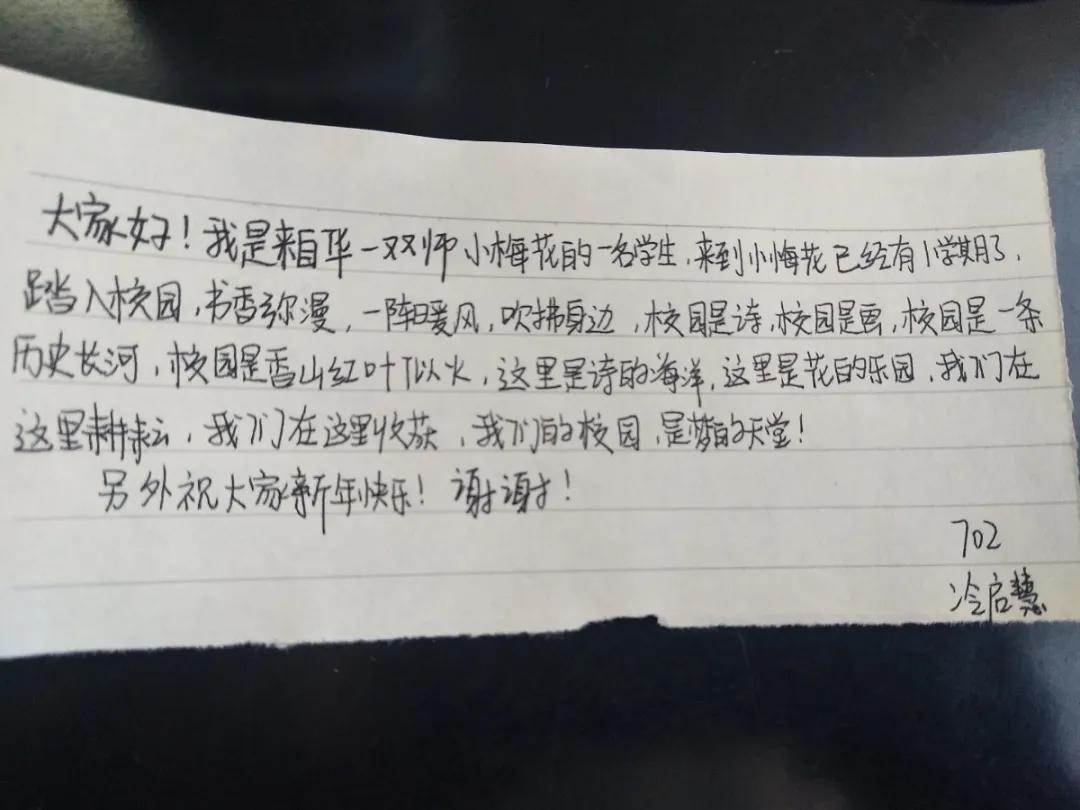 大家好！我是来自华一双师小梅花的一名学生，来到小梅花已经有1学期了，
踏入校园，书香弥漫，一阵暖风，吹拂身边，校园是诗，校园是画，校园是一条
历史长河，校园是香山红叶似火，这里是诗的海洋，这里是花的乐园，我们在
这里耕耘，我们在这里收获，我们的校园，是梦的天堂！
另外祝大家新年快乐！谢谢！
702
冷启慧